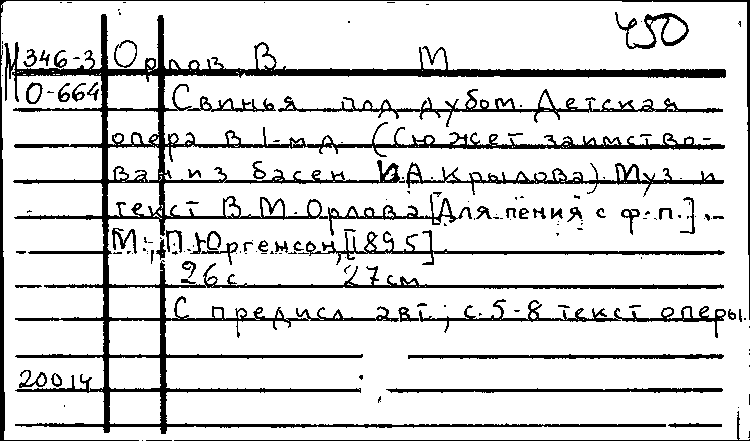 450
М 346-3 Орлов, В. М
О-664 Свинья под дубом. Детская
опера в 1-м д. (Сюжет заимство-
ван из басен И.А. Крылова). Муз. и
текст В.М. Орлова [Для пения с ф.-п.].
М., П. Юргенсон, [1895].
26 с. 27 см.
С предисл. авт.; с. 5-8 текст оперы.
20014